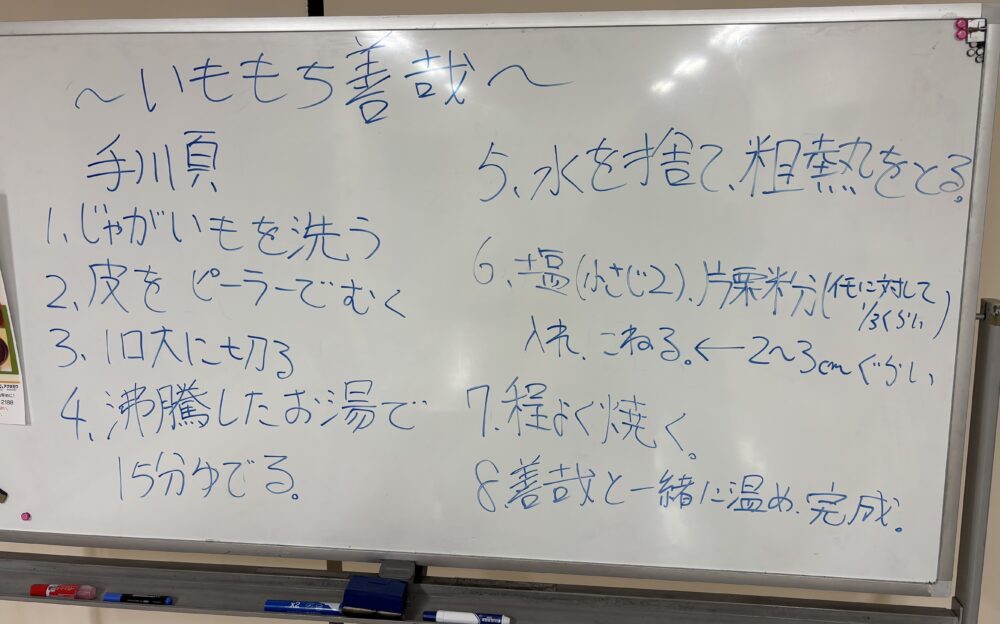 ~いももち善哉~
手順
1、じゃがいもを洗う
2、皮をピーラーでむく
3、1口大に切る
4、沸騰したお湯で
15分ゆでる。
5、水を捨て、粗熱をとる。
6、塩(小さじ2)、片栗粉分(イモに対して
1/3くらい)
入れ、こねる。←2~3cmぐらい
7、程よく焼く。
8、善哉と一緒に温め、完成。
2188